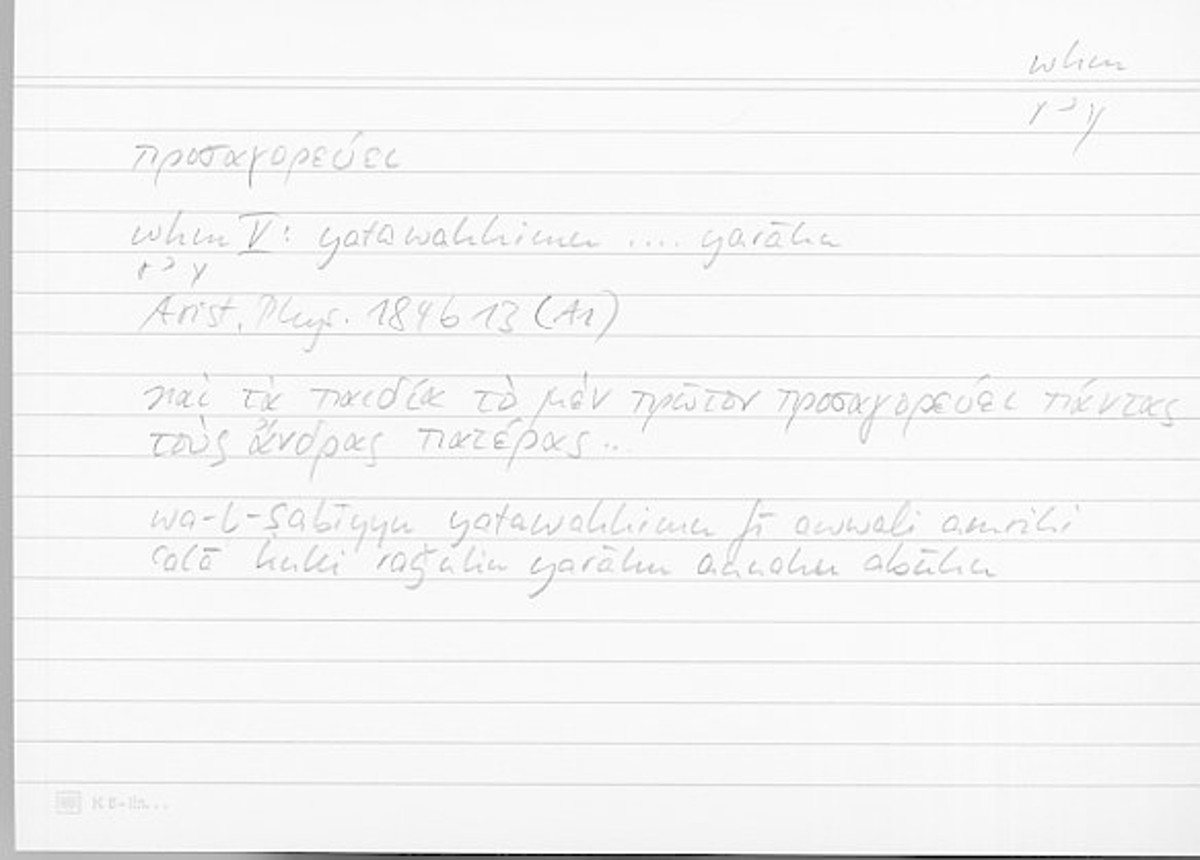 whm
r ʾ y
προσαγορεύει
whm V: yatawahhimu .... yarāhu
r ʾ y
Arist. Phys. 184b13 (A1)
καὶ τὰ παιδία τὸ μὲν πρῶτον προσαγορεύει πάντας
τοὺς ἄνδρας πατέρας..
wa-l-ṣabīyyu yatawahhimu fī awwali amrihi
ʿalā kulli raǧulin yarāhu annahu abūhu